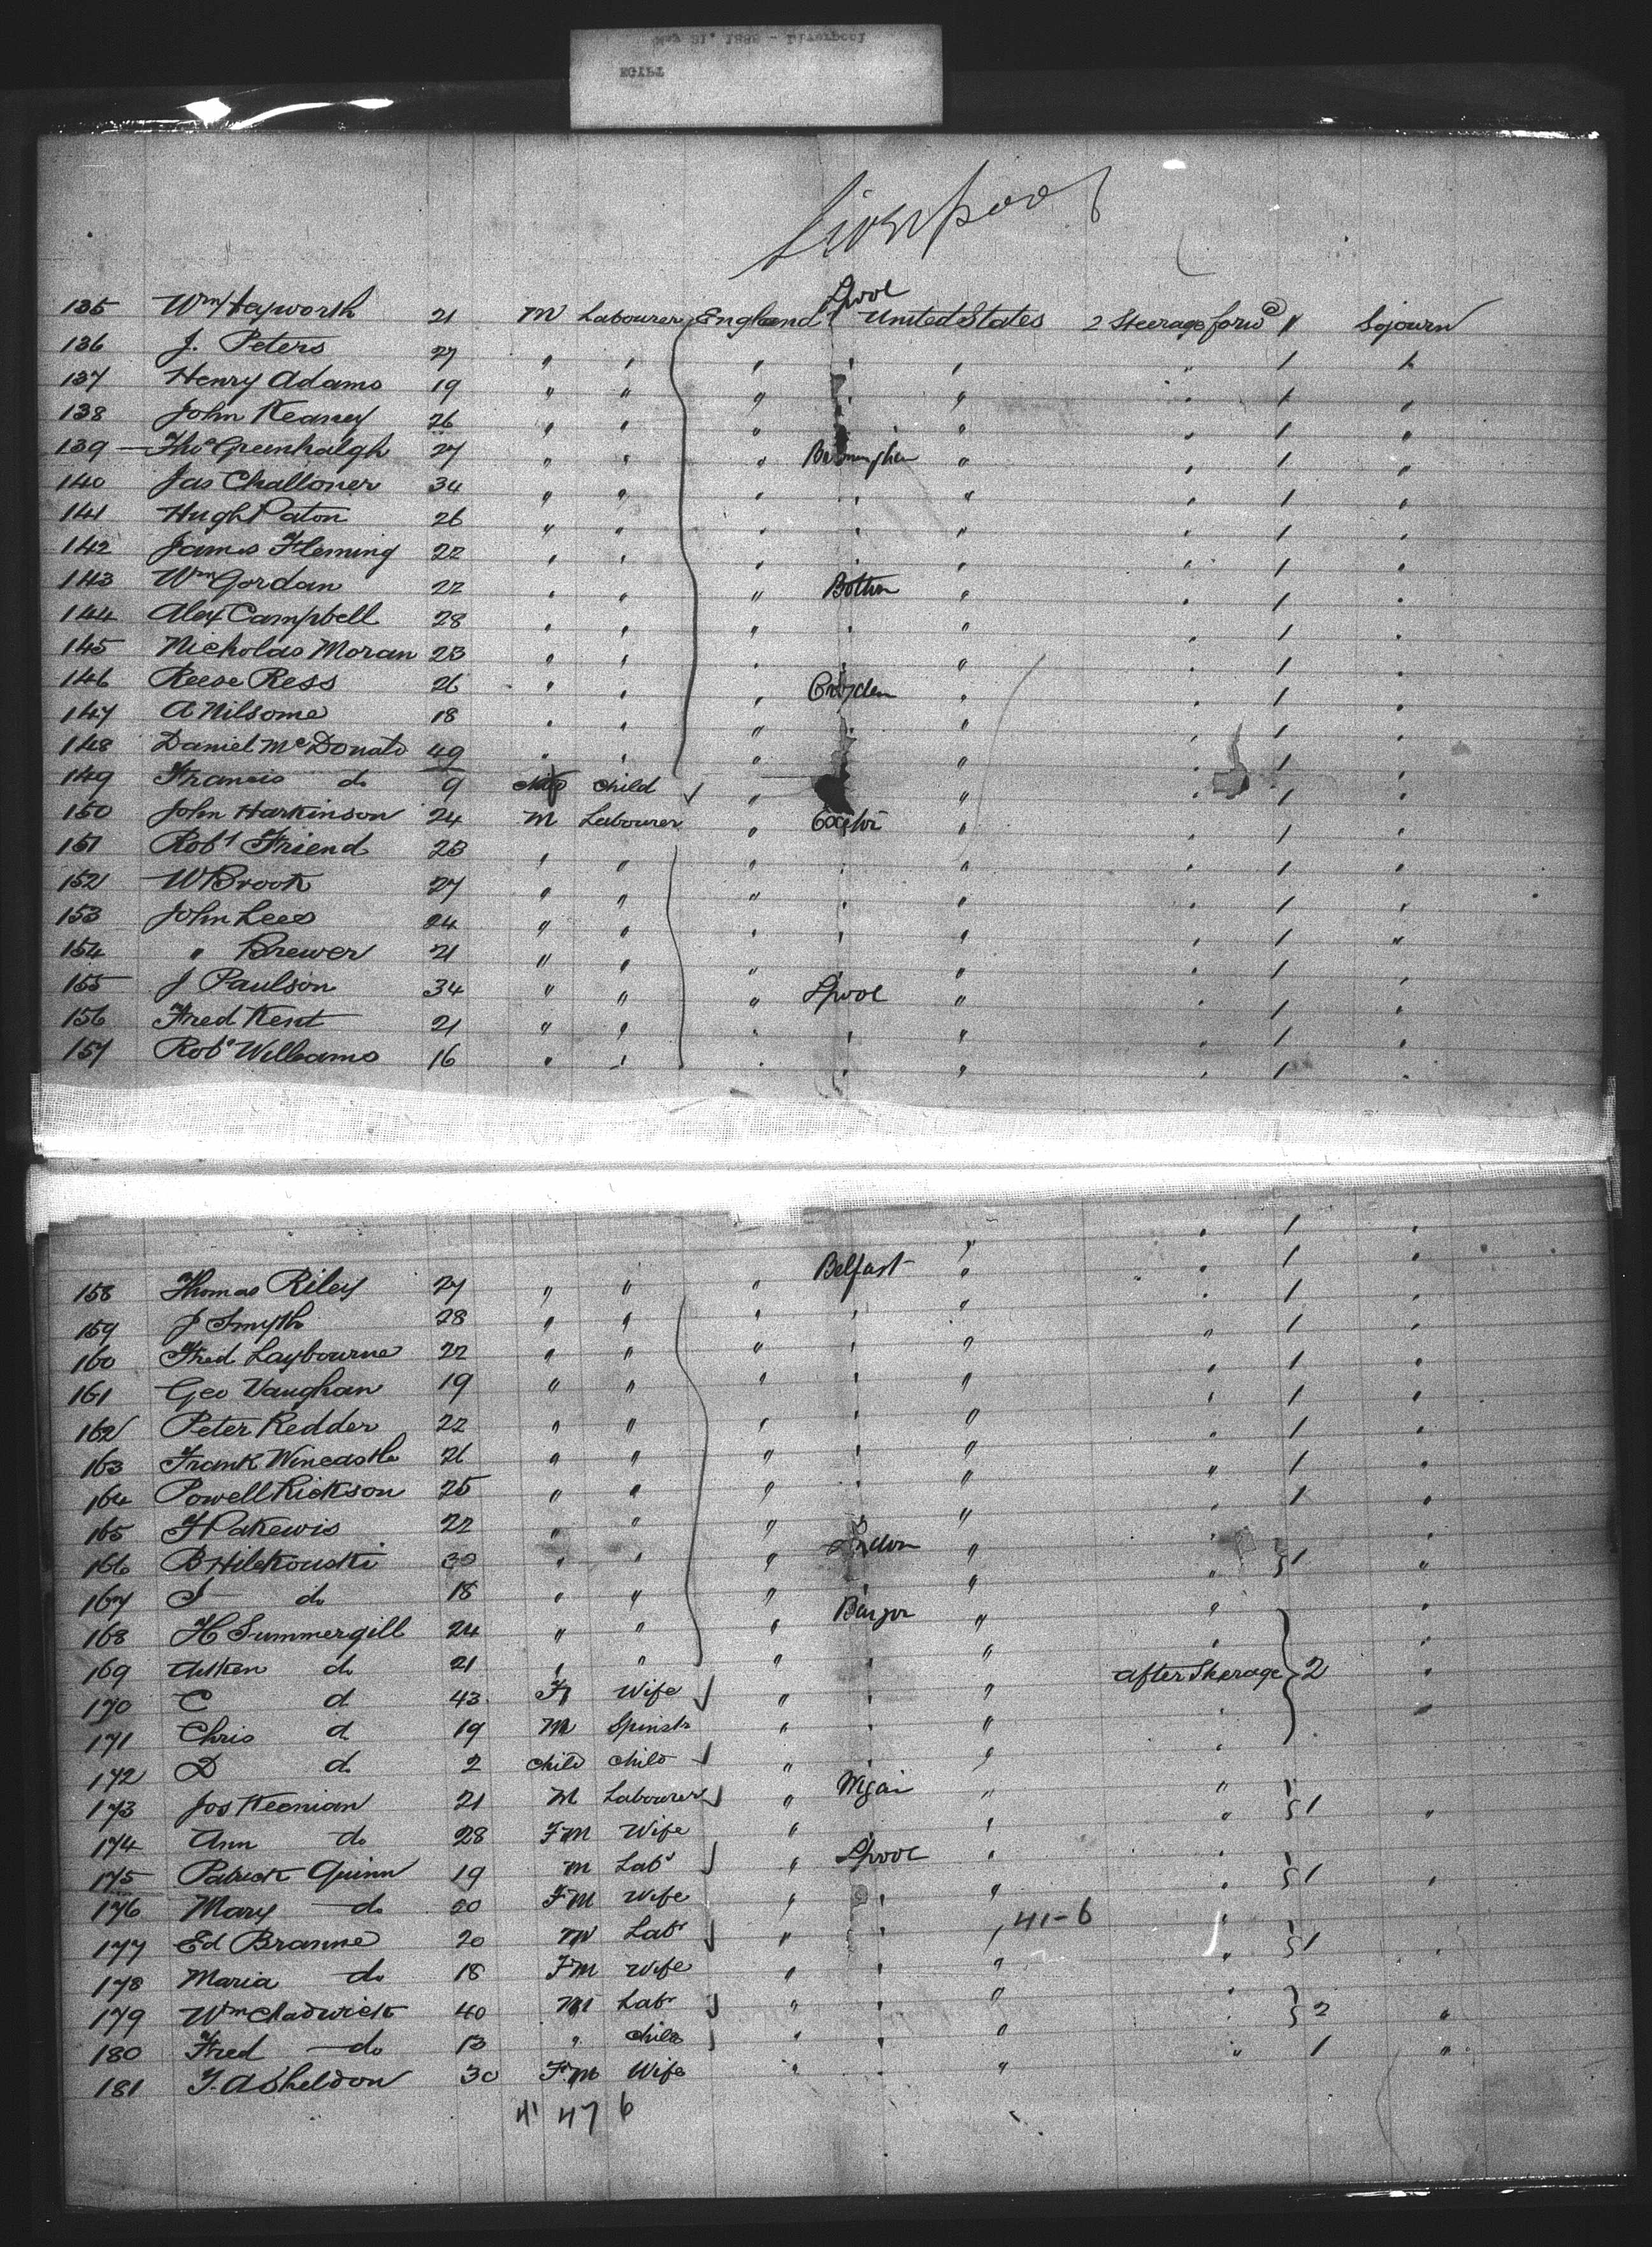 May 21. 1888 - Liverpool
EGIPT
Liverpool
135 Wm Hayworth 21 M Labourer England Lpool United States 2 Steerage forwd 1 Sojourn
136 J. Peters 27 " " " " " " 1 "
137 Henry Adams 19 " " " " " " 1 "
138 John Kearney 26 " " " " " " 1 "
139 Thos Greenhalgh 27 " " " Birmingham " " 1 "
140 Jas Challoner 34 " " " " " " 1 "
141 Hugh Paton 26 " " " " " " 1 "
142 James Fleming 22 " " " " " " 1 "
143 Wm Gordan 22 " " " Bolton " " 1 "
144 Alex Campbell 28 " " " " " " 1 "
145 Nicholas Moran 23 " " " " " " 1 "
146 Reese Ress 26 " " " Croyden " " 1 "
147 A Nilsome 18 " " " " " " 1 "
148 Daniel McDonald 49 " " " " " " 1 "
149 Francis do 9 child child " " " 1 "
150 John Harkinson 24 M Labourer " Exeter " " 1 "
151 Robt Friend 23 " " " " " " 1 "
152 W Brook 27 " " " " " " 1 "
153 John Lees 24 " " " " " " 1 "
154 " Brewer 21 " " " " " " 1 "
155 J Paulson 34 " " " Lpool " " 1 "
156 Fred Kent 21 " " " " " " 1 "
157 Robt Williams 16 " " " " " " 1 "
158 Thomas Riley 27 " " " Belfast " " 1 "
159 J Smyth 28 " " " " " " 1 "
160 Fred Laybourne 22 " " " " " " 1 "
161 Geo Vaughan 19 " " " " " " 1 "
162 Peter Redder 22 " " " " " " 1 "
163 Frank Wincastle 26 " " " " " " 1 "
164 Powell Rickson 25 " " " " " " 1 "
165 F Pakewis 22 " " " " " " 1 "
166 B Hilekouski 30 " " " London " " 1 "
167 J do 18 " " " " " "
168 H Summergill 24 " " " Bangor " " "
169 Aitken do 21 " " " " " " "
170 C do 43 F Wife " " " after Steerage 2 "
171 Chris do 19 M Spinstr " " " " "
172 D do 2 child child " " " "
173 Jos Keenian 21 M Labourer " Wigan " " 1 "
174 Ann do 28 FM Wife " " " "
175 Patrick Quinn 19 M Labr " Lpool " " 1 "
176 Mary do 20 FM Wife " " " "
41-6
177 Ed Branne 20 M Labr " " " " 1 "
178 Maria do 18 FM Wife " " " "
179 Wm Chadwick 40 M Labr " " " " 2 "
180 Fred do 13 " child " " " "
181 J. A Sheldon 30 FM Wife " " " " 1 "
41 47 6